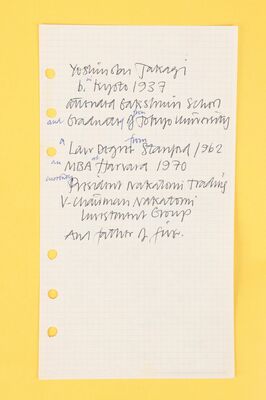 Yoshinobu Takagi
b. in Kyoto 1937
attended Gakshuin School
and Graduated from of Tokyo University
a Law Degree from Stanford 1962
an MBA at Harvard 1970
currently President Nakatomi Trading
V-Chairman Nakatomi
Investment Group
And father of five.